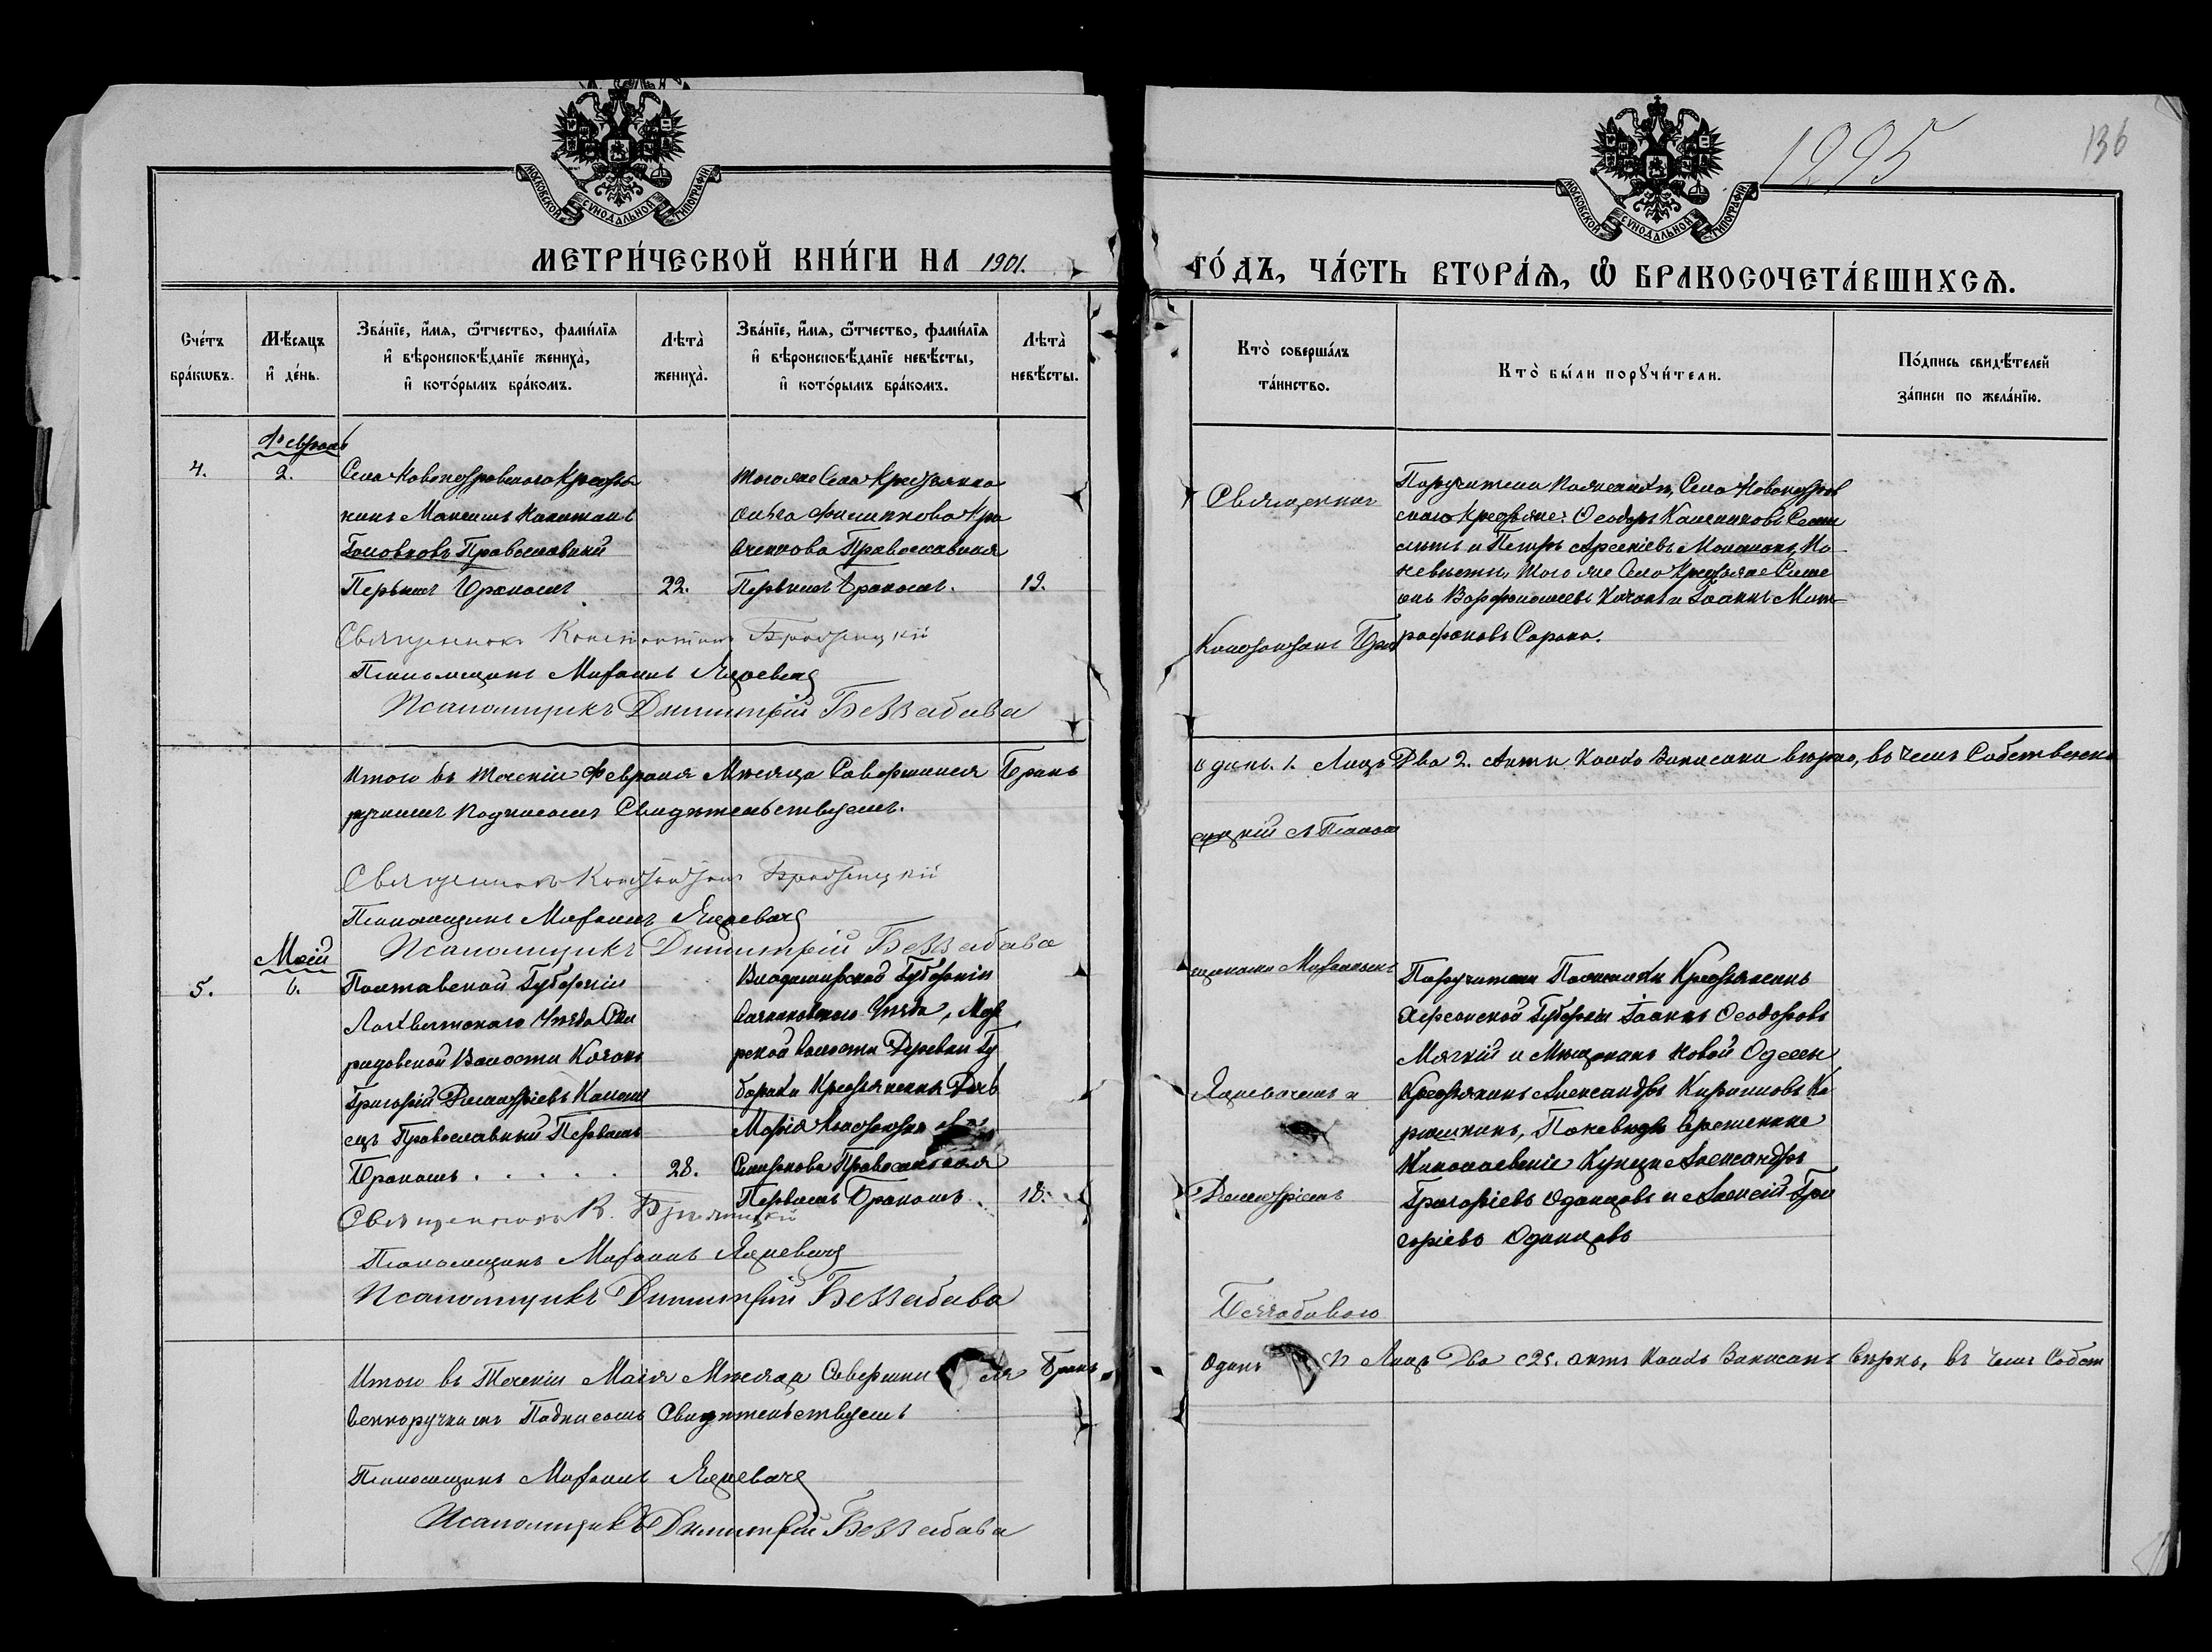 1295
136
МОСКОВСКОЙ СѴНОДАЛЬНОЙ ТИПОГРАФІИ
МОСКОВСКОЙ СѴНОДАЛЬНОЙ ТИПОГРАФІИ
МЕТРИ́ЧЕСКОЙ КНИ́ГИ НА 1901.
ГО́ДЪ, ЧА́СТЬ ВТОРА́Ѧ, Ѿ БРАКОСОЧЕТА́ВШИХСѦ.
Сче́тъ бра́кѡвъ.
Мѣ́сяцъ и҆ де́нь.
Зва́нїе, и҆́мя, ѻ҆́тчество, фами́лїя и҆ вѣроисповѣ́данїе жениха̀, и҆ кото́рымъ бра́комъ.
Лѣта̀ жениха̀.
Зва́нїе, и҆́мя, ѻ҆́тчество, фами́лїя и҆ вѣроисповѣ́данїе невѣ́сты, и҆ кото́рымъ бра́комъ.
Лѣта̀ невѣ́сты.
Кто̀ соверша́лъ та́инство.
Кто̀ бы́ли порꙋчи́тели.
По́дпись свидѣ́телей за́писи по жела́нїю.
4.
Февраль
2.
Села Новопетровскаго Крестья
нинъ Максимъ
Головковъ Православный
Первымъ Бракомъ
22.
Того же Села Крестьянка
Ольга Филиппова
Православная
Первымъ Бракомъ.
19.
Священник
Константинъ Брат
Поручители По женихѣ, Села Новопетров
скаго Крестьяне: Ѳеодоръ
и Петръ Арсеніевъ По
невѣсти, того же Села Крестьяне Симе
онъ Варфоломеевъ и Іоаннъ Мит
рофановъ Сорока.
Священникъ Константинъ Братерицкій
Псаломщикъ Михаилъ Яцкевичъ
Псаломщикъ Димитрій Беззабава
Итого въ теченіи Февраля Мѣсяца Совершился Бракъ
одинъ. 1. Лицъ Два 2. Актъ Коихъ Записани вѣрно, въ чемъ Собственно
ручнымъ подписомъ Свидѣтельствуемъ.
Священникъ Константинъ Братерицкій
Псаломщикъ Михаилъ Яцкевичъ
Псаломщикъ Димитрій Беззабава
5.
Май
6.
Полтавской Губерніи
Лохвитскаго Уѣзда
Волости Козакъ
Григорій Димитріевъ
ецъ Православный Первымъ
Бракомъ . . . . .
28.
Владимирской Губерніи
Уѣзда,
Волости Деревни
Крестьянина Дочь
Марія
Смирнова Православная
Первымъ Бракомъ.
18.
щиками Михаиломъ
Яцкевичемъ и
Димитріемъ
Беззабавою
Поручители По женихѣ Крестьянинъ
Херсонской Губерніи Іоаннъ Ѳеодоровъ
Мягкій и Мѣщанинъ Новой Одессы
Крестьянинъ Александръ Кириловъ
По невѣсти временные
Николаевскіе Купцы Александръ
Григоріевъ Одинцовъ и Алексій Гри
горіевъ Одинцовъ
Псаломщикъ Михаилъ Яцкевичъ
Псаломщикъ Димитрій Беззабава
Итого въ Теченіи Маія Мѣсяца Совершил ся Бракъ
Одинъ Лицъ Два актъ Коихъ Записанъ вѣрно, въ чемъ Собст
венноручнымъ Подписомъ Свидѣтельствуемъ
Псаломщикъ Михаилъ Яцкевичъ
Псаломщикъ Димитрій Беззабава